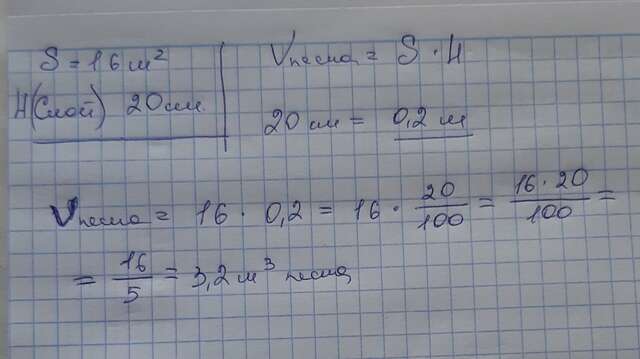 S = 16 м²
H (слой) 20 см
Vпеска = S · H
20 см = 0,2 м
Vпеска = 16 · 0,2 = 16 · 20/100 = 16 · 20/100 =
= 16/5 = 3,2 м³ песка